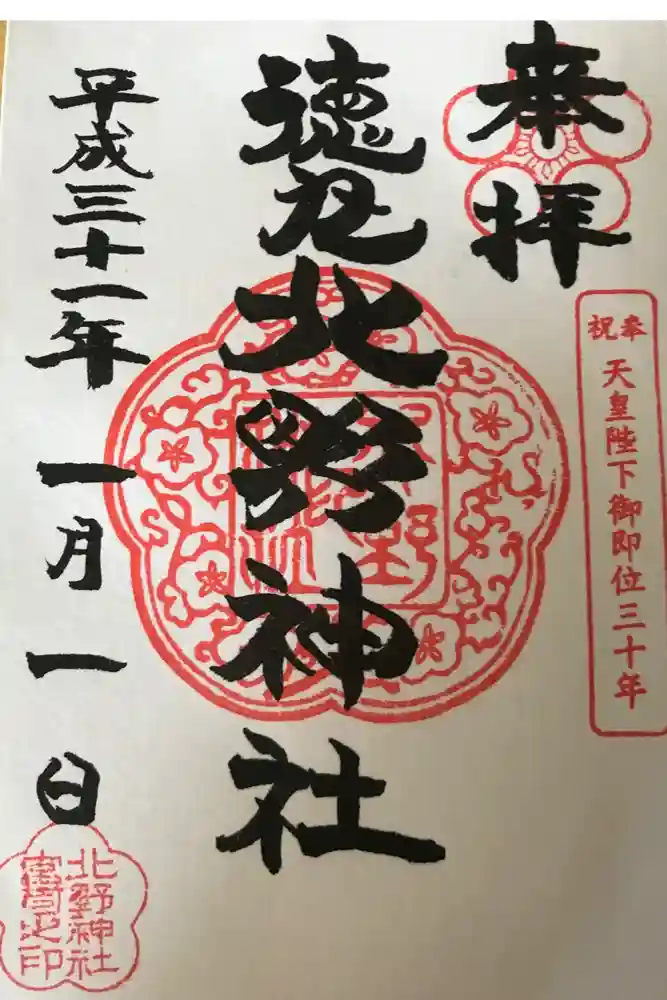 奉拝
奉祝
天皇陛下御即位三十年
徳丸北野神社
平成三十一年一月一日
北野神社